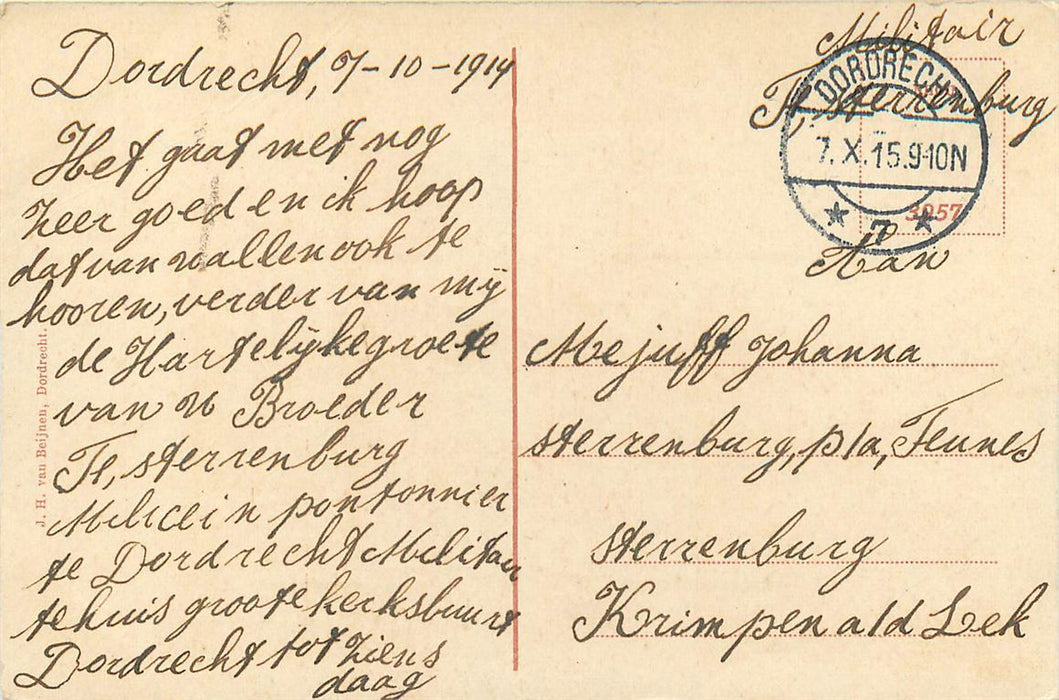 Dordrecht, 7-10-1914
Het gaat met nog
zeer goed en ik hoop
dat van u allen ook te
hooren, verder van mij
de Hartelijke groete
van u Broeder
T, sterrenburg
Milicein pontonnier
te Dordrecht Militair
tehuis groote kerksbuurt
Dordrecht tot ziens
daag
J. H. van Beijnen, Dordrecht.
Militair
T, sterrenburg
DORDRECHT
7.X.15.9-10N
7
3957
Aan
Mejuff Johanna
sterrenburg, p/a, Teunes
sterrenburg
Krimpen a/d Lek